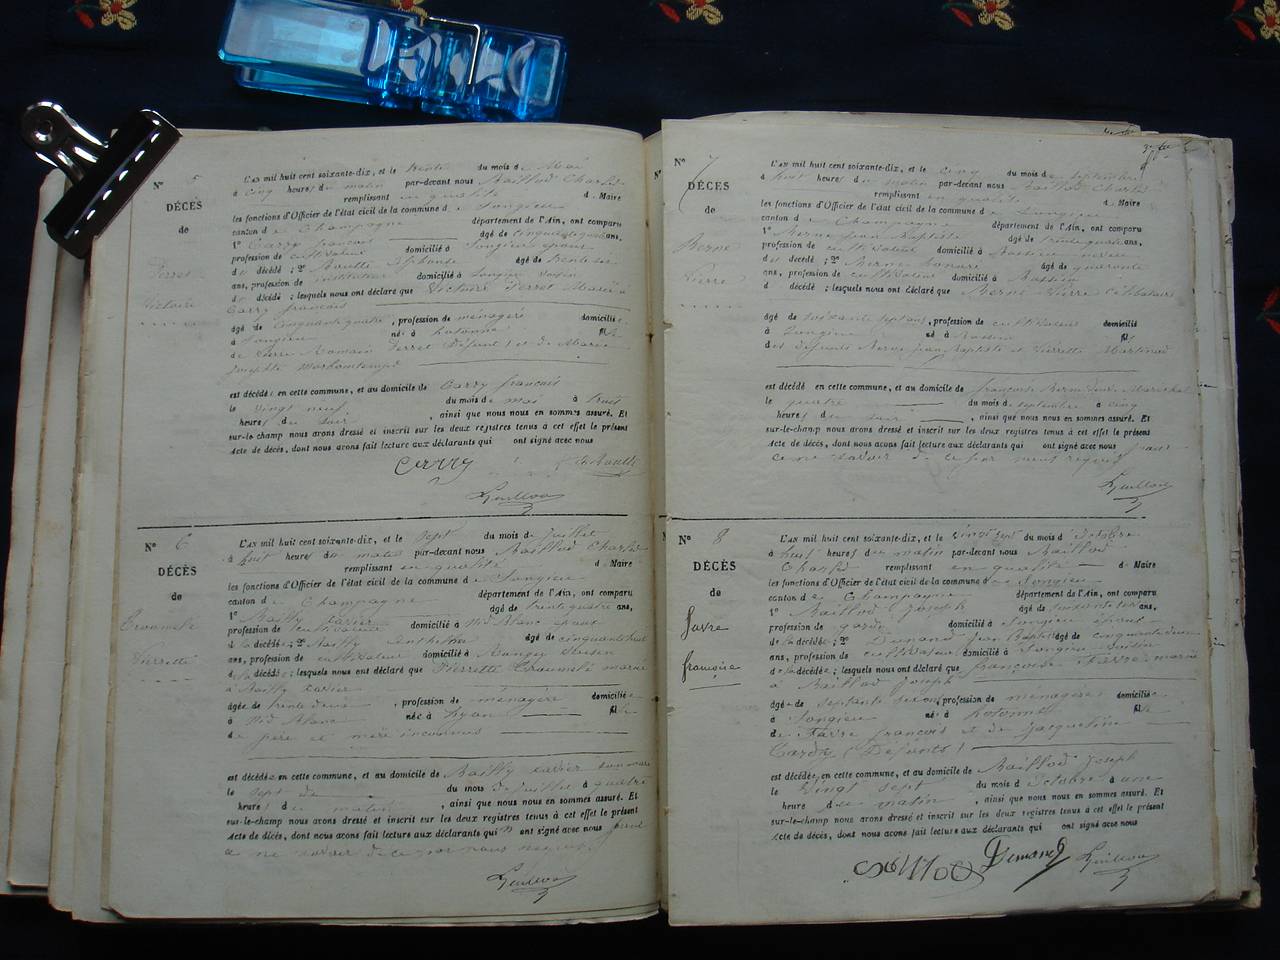 N° 5
DÉCÈS
de
Perret
Victoire
L'AN mil huit cent soixante-dix, et le trente du mois d e Mai
à cinq heures du matin par-devant nous Baillod Charles
remplissant en qualité d e Maire
les fonctions d'Officier de l'état civil de la commune d e Songieu
canton d e Champagne département de l'Ain, ont comparu
1° Carry françois âgé de cinquante ans,
profession de cultivateur domicilié à Songieu époux
de la décédée ; 2° Alphonse âgé de trente six
ans, profession de instituteur domicilié à Songieu voisin
d décédé ; lesquels nous ont déclaré que Victoire Perret Mariée à
Carry françois
âgé de Cinquante quatre , profession de ménagère domicilié e
à Songieu né à hotonne fille
de Pierre Romain Perret Défunt et de Marie
Josephte
est décédé en cette commune, et au domicile de Carry françois
le Vingt neuf du mois de mai à huit
heures du soir , ainsi que nous nous en sommes assuré. Et
sur-le-champ nous avons dressé et inscrit sur les deux registres tenus à cet effet le présent
Acte de décès, dont nous avons fait lecture aux déclarants qui ont signé avec nous
Carry
N° 6
DÉCÈS
de
Pierrette
L'AN mil huit cent soixante-dix, et le sept du mois de juillet
à huit heures du matin par-devant nous Baillod Charles
remplissant en qualité d e Maire
les fonctions d'Officier de l'état civil de la commune d e Songieu
canton d e Champagne département de l'Ain, ont comparu
1° Bailly xavier âgé de trente quatre ans,
profession de cultivateur domicilié à Nid Blanc époux
de la décédée ; 2° Bailly Anthelme âgé de cinquante huit
ans, profession de cultivateur domicilié à voisin
de la décédée ; lesquels nous ont déclaré que Pierrette mariée
à Bailly xavier
âgée de trente deux , profession de ménagère domiciliée
à Nid Blanc née à Lyon fille
de père et mère inconnus
est décédée en cette commune, et au domicile de Bailly xavier son mari
le sept du mois de juillet à quatre
heures du matin , ainsi que nous nous en sommes assuré. Et
sur-le-champ nous avons dressé et inscrit sur les deux registres tenus à cet effet le présent
Acte de décès, dont nous avons fait lecture aux déclarants qui n'ont signé avec nous pour
ce ne savoir de ce par nous requis
N° 7
DÉCÈS
de
Berne
Pierre
L'AN mil huit cent soixante-dix, et le cinq du mois de septembre
à huit heures du matin par-devant nous Baillod Charles
remplissant en qualité d e Maire
les fonctions d'Officier de l'état civil de la commune d e Songieu
canton d e Champagne département de l'Ain, ont comparu
1° Berne jean Baptiste âgé de trente quatre ans,
profession de cultivateur domicilié à Bassieu neveu
du décédé ; 2° Berne honoré âgé de quarante
ans, profession de cultivateur domicilié à Bassieu
d décédé ; lesquels nous ont déclaré que Berne Pierre Célibataire
âgé de soixante sept ans, profession de cultivateur domicilié
à Songieu né à Bassieu fils
des défunts Berne jean Baptiste et Pierrette Martinod
est décédé en cette commune, et au domicile de françoise Berne
le quatre du mois de septembre à cinq
heures du soir , ainsi que nous nous en sommes assuré. Et
sur-le-champ nous avons dressé et inscrit sur les deux registres tenus à cet effet le présent
Acte de décès, dont nous avons fait lecture aux déclarants qui ont signé avec nous pour
ce ne savoir de ce par nous requis
N° 8
DÉCÈS
de
favre
françoise
L'AN mil huit cent soixante-dix, et le vingt sept du mois d'octobre
à huit heures du matin par-devant nous Baillod
Charles remplissant en qualité d e Maire
les fonctions d'Officier de l'état civil de la commune d e Songieu
canton d e Champagne département de l'Ain, ont comparu
1° Baillod Joseph âgé de soixante ans,
profession de garde domicilié à Songieu époux
de la décédée ; 2° Demand Jean Baptiste âgé de cinquante deux
ans, profession de cultivateur domicilié à Songieu voisin
de la décédée ; lesquels nous ont déclaré que françoise Favre mariée
à Baillod Joseph
âgée de septante six ans, profession de ménagère domiciliée
à Songieu née à hotonne fille
de Favre françois et de jacqueline
(Défunts)
est décédée, en cette commune, et au domicile de Baillod Joseph
le Vingt sept du mois d'Octobre à une
heure du matin , ainsi que nous nous en sommes assuré. Et
sur-le-champ nous avons dressé et inscrit sur les deux registres tenus à cet effet le présent
Acte de décès, dont nous avons fait lecture aux déclarants qui ont signé avec nous
Baillod Demand